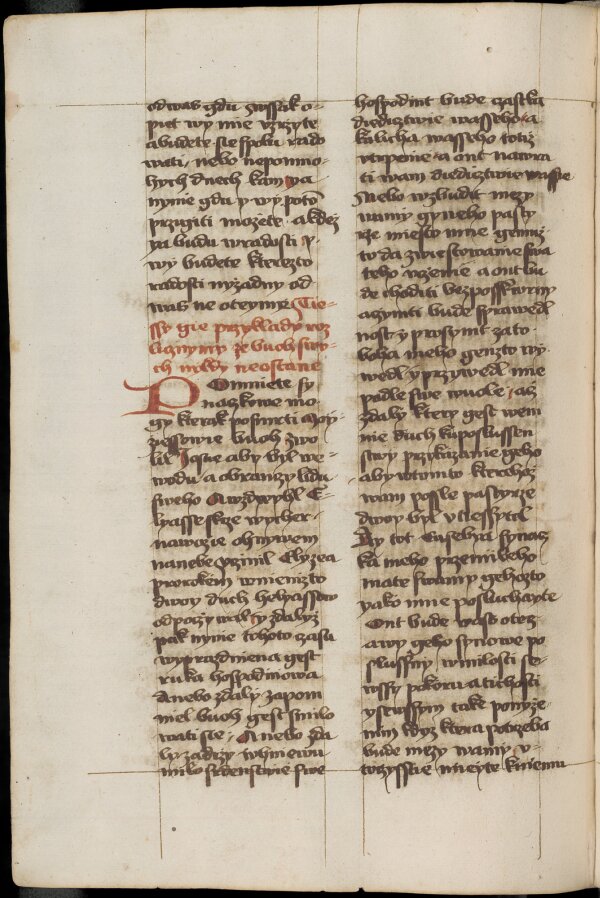 od was gdu zassik o-
piet wy mie vzrzyte
abudete sie spolu rado
wati, nebo nepomno-
hych dnech kam ya
nynie gdu y wy poto
przigiti mozete a kdez
ya budu wradosti y
wy budete kterezto
radosti nyzadny od
was ne oteyme Tie-
ssy gie przyklady roz
licznymy ze buoh swy-
ch nikdy neostane
Pomniete sy
naczkywe mo-
gy kterak po smrti Moy-
zyessowie buoh zwo
lil Josue aby byl we-
wodu a obranczi lidu
sweho A wzdwyhl E-
lyasse skrze wycher
nawozie ohnywem
nanebe vczinil Elyzea
prorokem wniemzto
dwoy duch helyassow
odpoczywal ty zdalyz
pak nynie tohoto czasu
wyprazdniena gest
ruka hospodinowa
Anebo zdaly zapom
niel buoh gest smilo
wati sie, Anebo zda
ly zadrzy whniewu
milosrdenstwie swe
hospodin bude czastka
diedicztwie wasseho a
kalicha wasseho totiz
vtrpenie a ont nawra
ti wam diedicztwie wasse
Anebo wzbudit mezy
wamy gyneho pasty
rze miesto mne gemuz-
to da zwiestowanie swa
teho vczenie a ont bu
de choditi bez posskwrny
aczynit bude sprawedl
nost y prosymt zato
boha meho genzto wy-
wedl y przywedl mie
podle swe wuole, az
zdaly ktery gest wem
nie duch ku poslussen
stwy przykazanie geho
aby wtomto kterehoz
wam posle pastyrze
dwoy byl vtiessytel
Ay tot Eusebia synacz
ka meho przemileho
mate swamy gehozto
yako mne posluchayte
Ont bude wass otecz
awy geho synowe po
slussny wmilosti se
wssy pokoru a tichosti
ysewssym take ponyze-
nim kdyz ktera potrzeba
bude mezy wamy v-
toczysstie mieyte kniemu